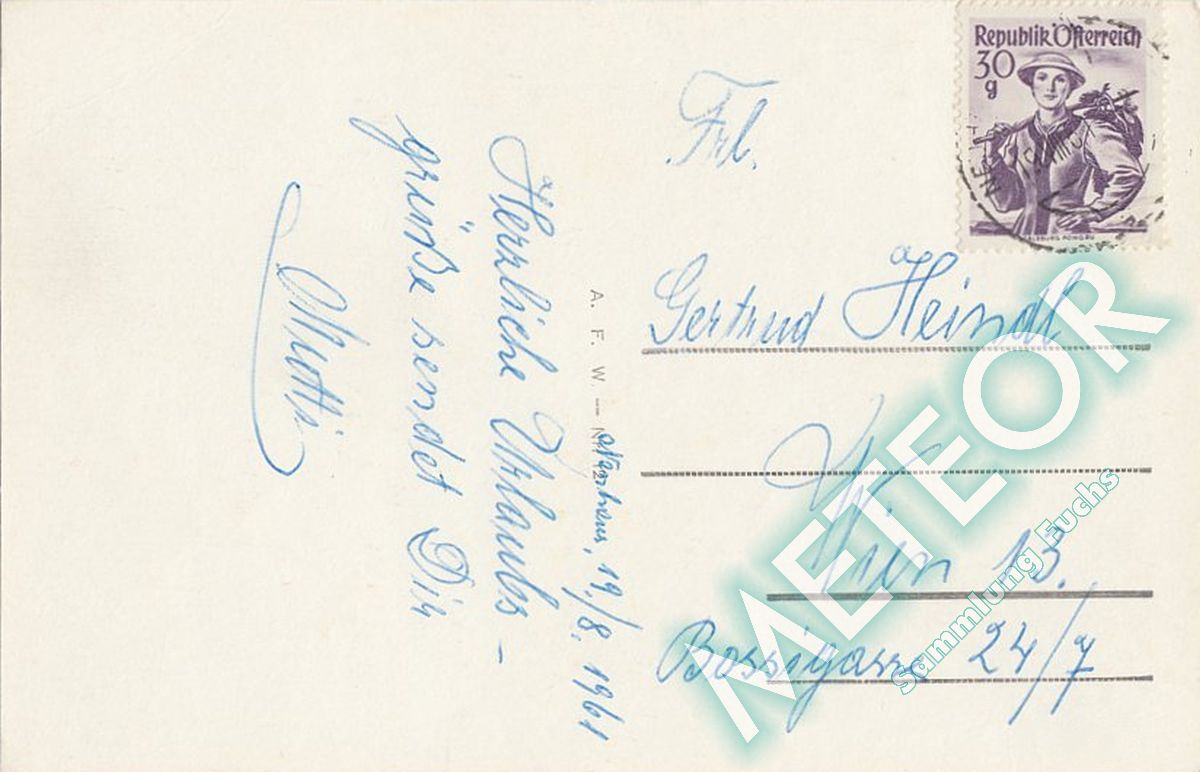 19/8. 1961
Herzliche Urlaubs-
grüße sendet Dir
Mutti
A. F. W. —
Frl.
Gertrud Heindl
Wien 13.
Bossigasse 24/7
Republik Österreich
30
g
SALZBURG PONGAU
METEOR
Sammlung Fuchs